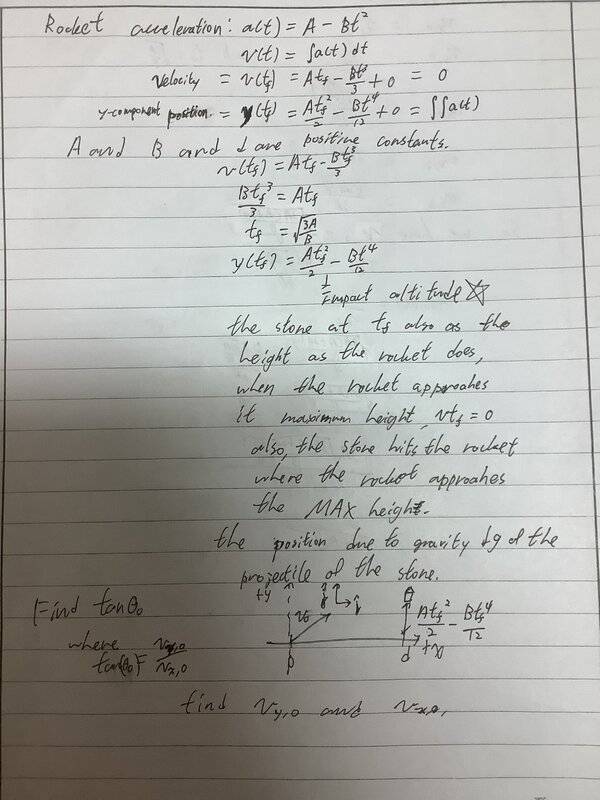 Rocket acceleration: a(t) = A - Bt²
v(t) = ∫a(t) dt
Velocity = v(t_f) = At_f - Bt³/3 + 0 = 0
y-component position = y(t_f) = At_f²/2 - Bt⁴/12 + 0 = ∫∫a(t)
A and B and d are positive constants.
v(t_f) = At_f - Bt_f³/3
Bt_f³/3 = At_f
t_f = √(3A/B)
y(t_f) = At_f²/2 - Bt⁴/12
Impact altitude ☆
the stone at t_f also as the
height as the rocket does,
when the rocket approahes
it maximum height, vt_f = 0
also, the stone hits the rocket
where the rocket approahes
the MAX height.
the position due to gravity ↓g of the
projectile of the stone.
+y ĵ î
Find tanθ₀
v₀ At_f²/2 - Bt_f⁴/12
where
tan(θ₀) = v_y,0/v_x,0
0 d +x
find v_y,0 and v_x,0,